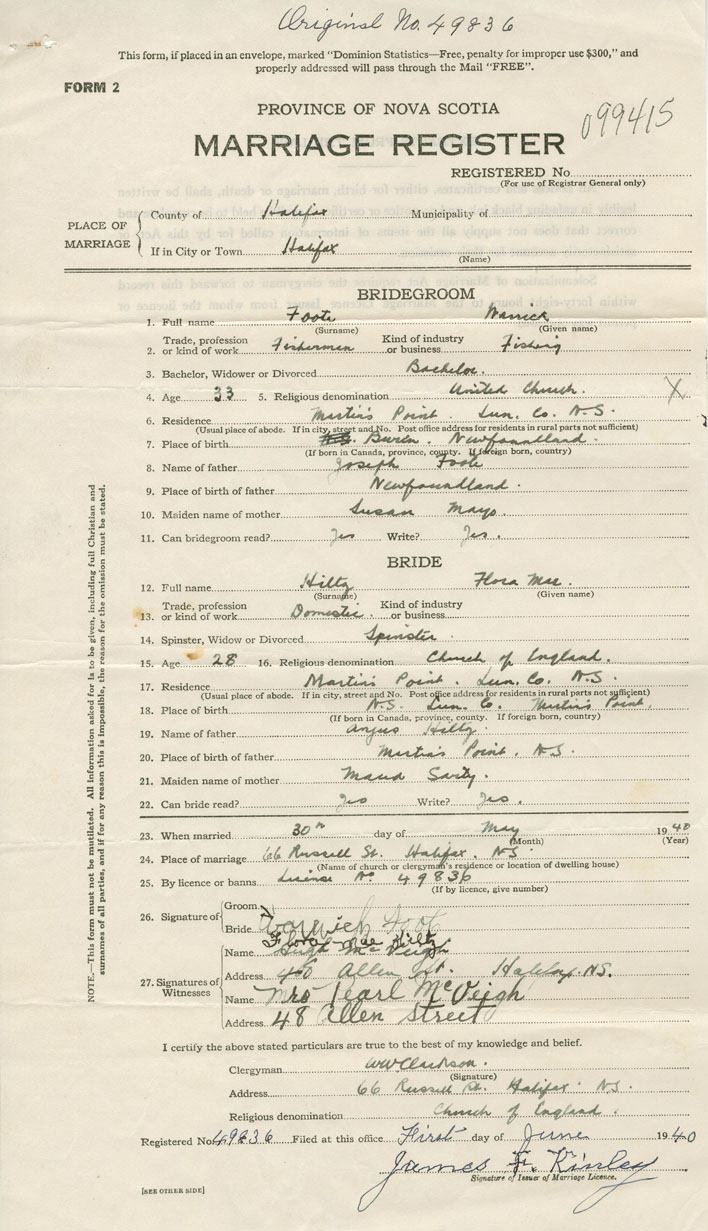 Original No. 49836
This form, if placed in an envelope, marked "Dominion Statistics—Free, penalty for improper use $300," and
properly addressed will pass through the Mail "FREE".
FORM 2
PROVINCE OF NOVA SCOTIA
099415
MARRIAGE REGISTER
REGISTERED No.
(For use of Registrar General only)
PLACE OF MARRIAGE
County of Halifax Municipality of
If in City or Town Halifax
(Name)
BRIDEGROOM
1. Full name Foote Warrick
(Surname) (Given name)
2. Trade, profession or kind of work Fisherman Kind of industry or business Fishing
3. Bachelor, Widower or Divorced Bachelor.
4. Age 33 5. Religious denomination United Church. X
6. Residence Martin's Point. Lun. Co. N.S.
(Usual place of abode. If in city, street and No. Post office address for residents in rural parts not sufficient)
7. Place of birth Buren. Newfoundland.
(If born in Canada, province, county. If foreign born, country)
8. Name of father Joseph Foote
9. Place of birth of father Newfoundland.
10. Maiden name of mother Susan Mayo.
11. Can bridegroom read? Yes Write? Yes.
BRIDE
12. Full name Hiltz Flora Mae.
(Surname) (Given name)
13. Trade, profession or kind of work Domestic. Kind of industry or business
14. Spinster, Widow or Divorced Spinster.
15. Age 28 16. Religious denomination Church of England.
17. Residence Martin's Point. Lun. Co. N.S.
(Usual place of abode. If in city, street and No. Post office address for residents in rural parts not sufficient)
18. Place of birth N.S. Lun. Co. Martin's Point.
(If born in Canada, province, county. If foreign born, country)
19. Name of father Angus Hiltz.
20. Place of birth of father Martin's Point. N.S.
21. Maiden name of mother Maud Sarty.
22. Can bride read? Yes Write? Yes.
23. When married 30th day of May 1940
(Month) (Year)
24. Place of marriage 66 Russell St. Halifax. N.S.
(Name of church or clergyman's residence or location of dwelling house)
25. By licence or banns License No 49836
(If by licence, give number)
26. Signature of
Groom
Warwich Foot
Bride
Flora Mae Hiltz
27. Signatures of Witnesses
Name Hugh McVeigh
Address 48 Allen St. Halifax. N.S.
Name Mrs Pearl McVeigh
Address 48 Allen Street
I certify the above stated particulars are true to the best of my knowledge and belief.
Clergyman WW Clarkson.
(Signature)
Address 66 Russell St. Halifax. N.S.
Religious denomination Church of England.
Registered No. 49836 Filed at this office First day of June 1940
James F. Kinley
Signature of Issuer of Marriage Licence.
[SEE OTHER SIDE]
NOTE.—This form must not be mutilated. All information asked for is to be given, including full Christian and
surnames of all parties, and if for any reason this is impossible, the reason for the omission must be stated.